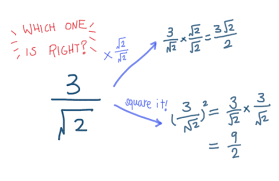 WHICH ONE
IS RIGHT?
× √2/√2
3/√2 × √2/√2 = 3√2/2
3/√2
square it!
(3/√2)² = 3/√2 × 3/√2
= 9/2